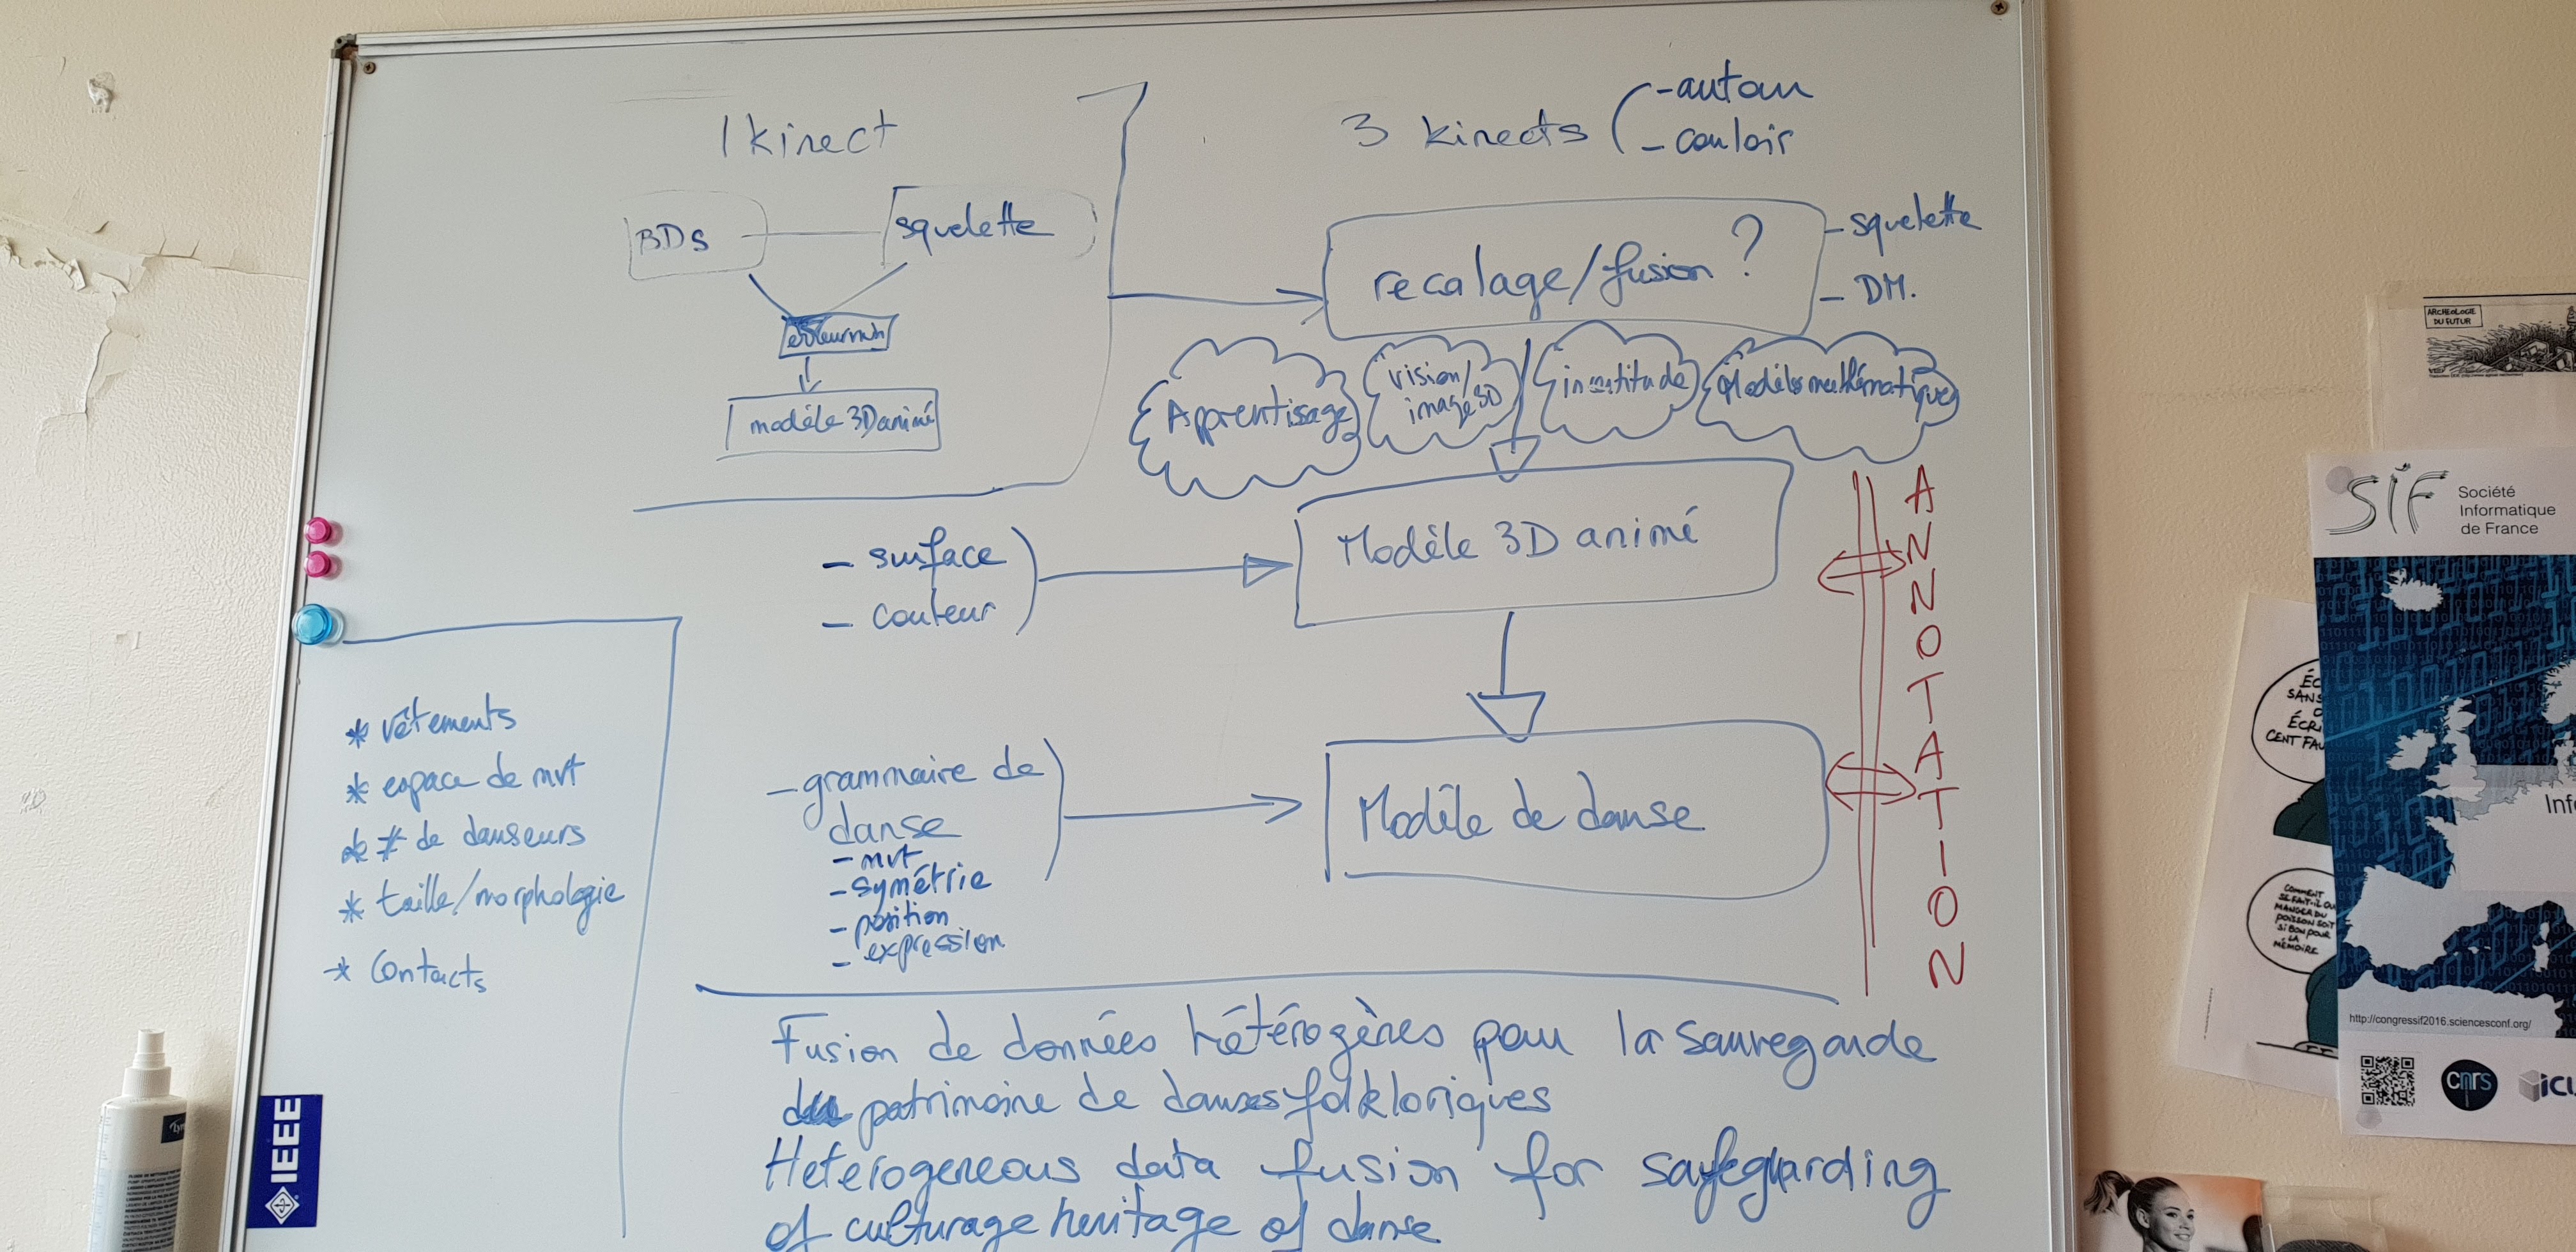 1 kinect
BDs
squelette
modèle 3D animé
3 kinects
- autour
- couloir
recalage/fusion ?
- squelette
- DM.
Apprentissage
vision/
image 3D
Modèles mathématiques
- surface
- couleur
Modèle 3D animé
- grammaire de
danse
- mvt
- symétrie
- position
- expression
Modèle de danse
ANNOTATION
* vêtements
* espace de mvt
* # de danseurs
* taille/morphologie
* Contacts
Fusion de données hétérogènes pour la sauvegarde
du patrimoine de danses folkloriques
Heterogeneous data fusion for safeguarding
of culturage heritage of danse
IEEE
ARCHEOLOGIE
DU FUTUR
SIF
Société
Informatique
de France
Inf
CENT FAU
COMMENT
SE FAIT-IL QUE
MANGER DU
POISSON SOIT
SI BON POUR
LA
MÉMOIRE
http://congressif2016.sciencesconf.org/
cnrs